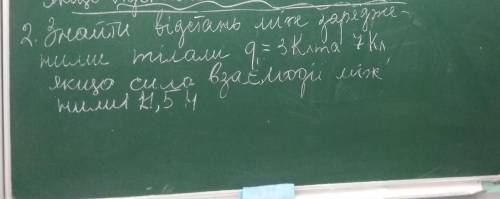 2. Знайти відстань між зарядже-
ними тілами q₁ = 3 Кл та 7 Кл
якщо сила взаємодії між
ними